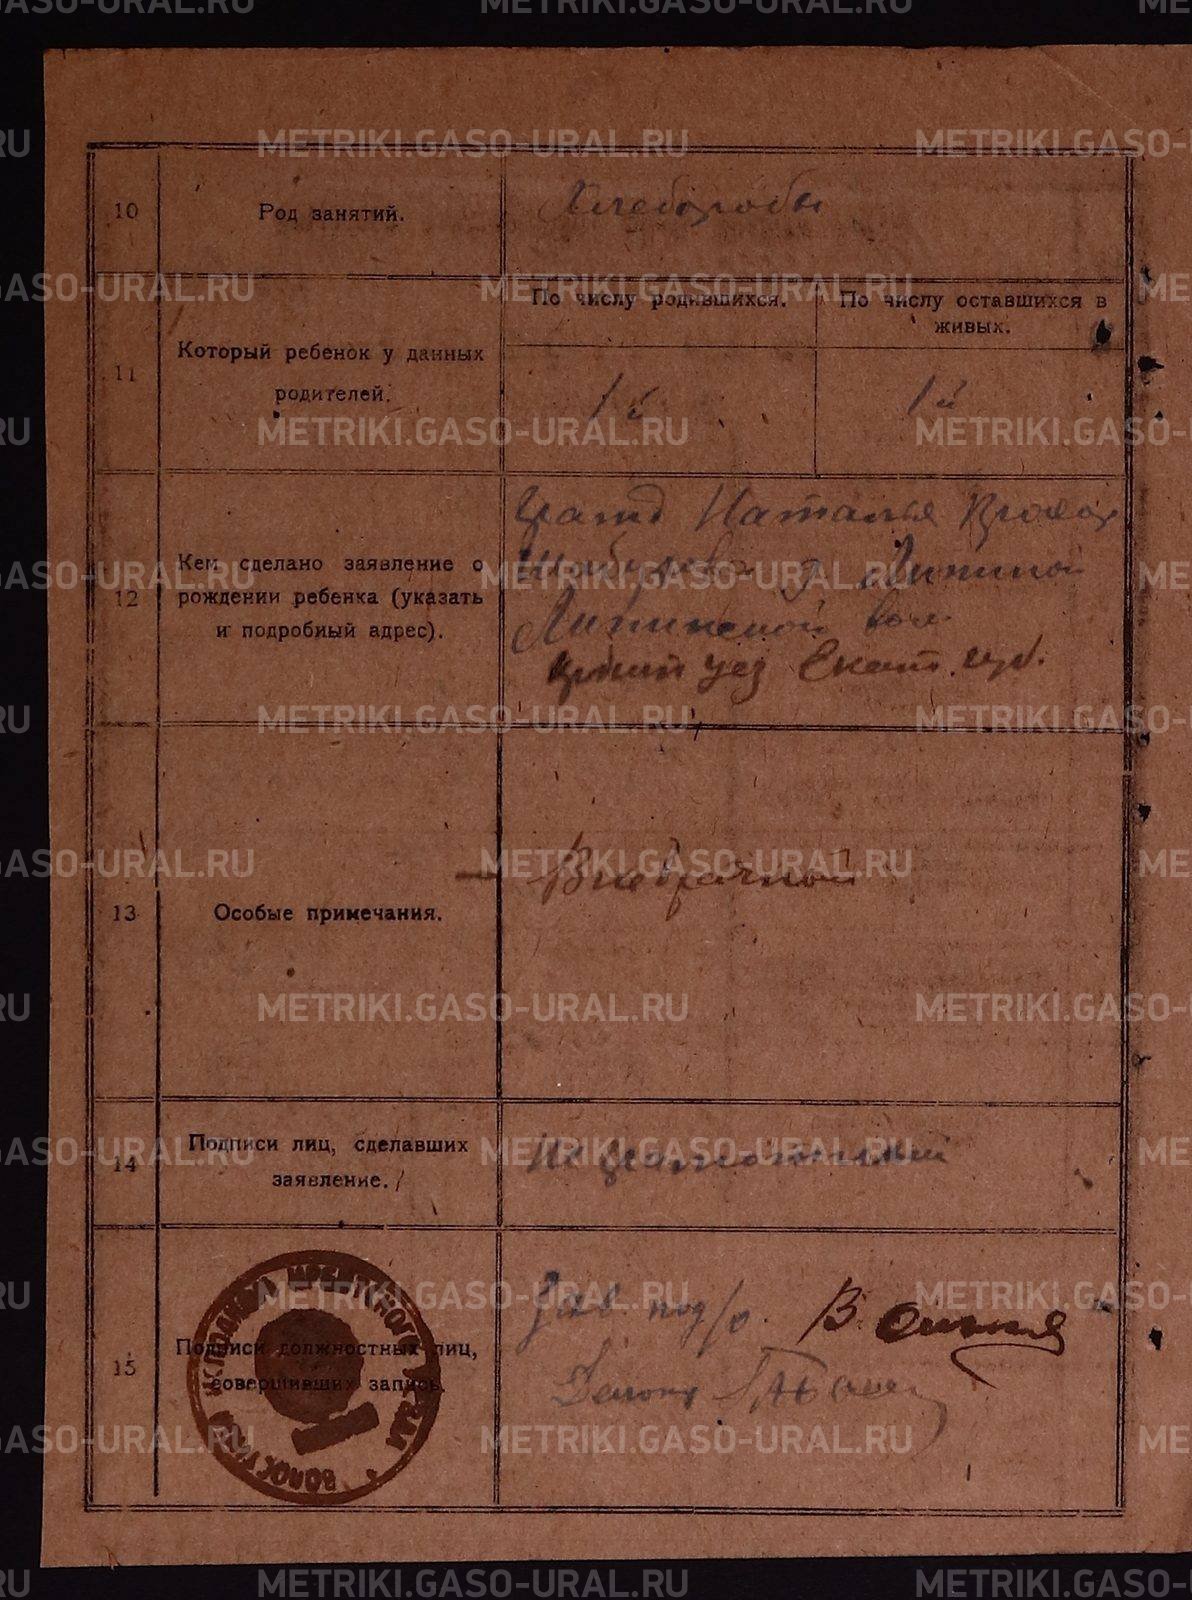 METRIKI.GASO-URAL.RU
10
Род занятий.
Хлеборобы
11
Который ребенок у данных
родителей.
По числу родившихся.
По числу оставшихся в
живых.
1й
1й
12
Кем сделано заявление о
рождении ребенка (указать
и подробный адрес).
Гражд Наталья
д Липиной
Липинской вол
Ирбит уез Екат. губ.
13
Особые примечания.
Внебрачной
14
Подписи лиц, сделавших
заявление.
Неграмотный
15
Подписи должностных лиц,
совершивших запись.
ИРБИТСКОГО УЕЗДА
Зав под/о. В.
Делопр